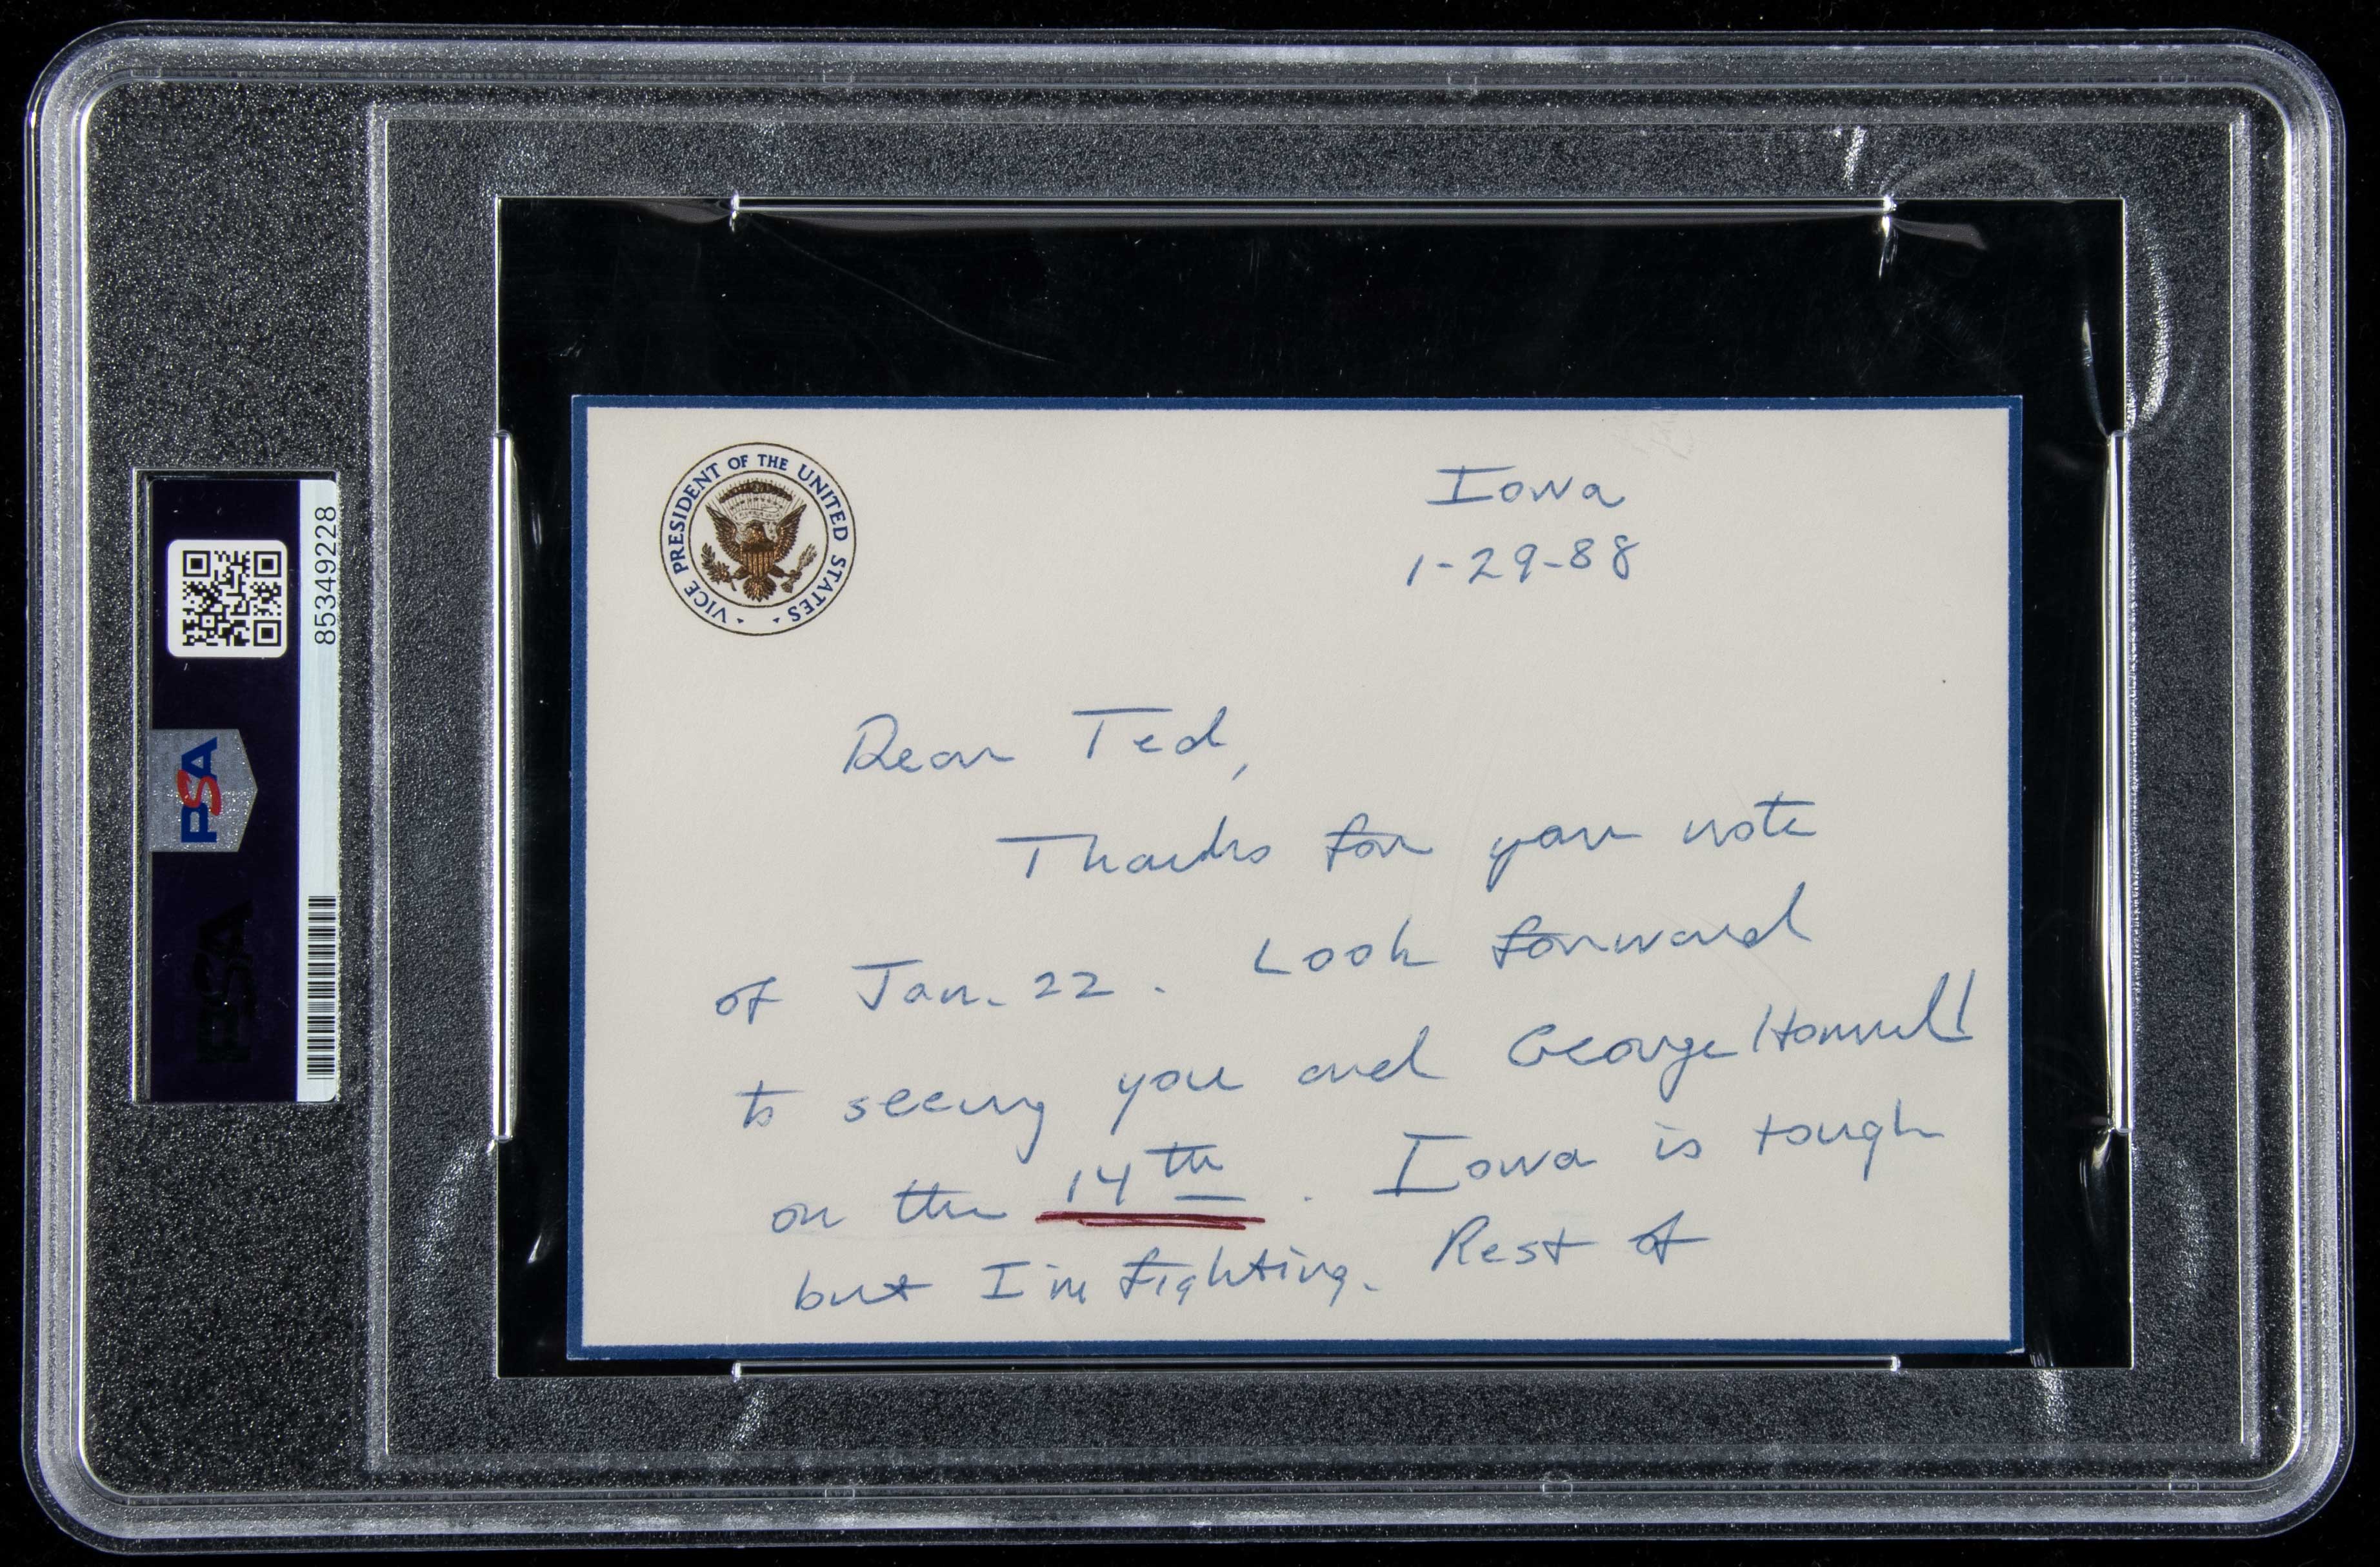 VICE PRESIDENT OF THE UNITED STATES
Iowa
1-29-88
Dear Ted,
Thanks for your note
of Jan. 22. Look forward
to seeing you and George
on the 14th. Iowa is tough
but I'm fighting. Rest of
85349228
PSA
PSA